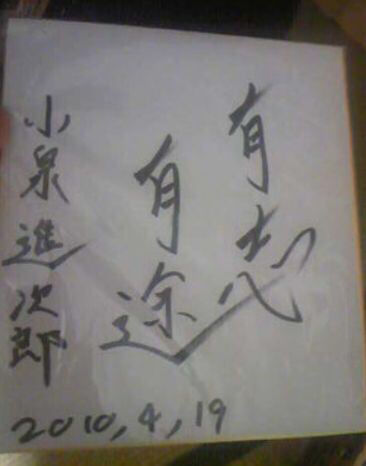 有志
有途
小泉進次郎
2010,4,19